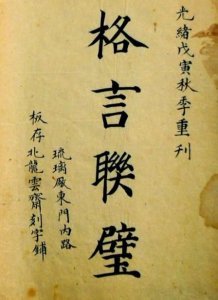 光緒戊寅秋季重刊
格言聯璧
琉璃厰東門內路
板存北龍雲齋刻字鋪